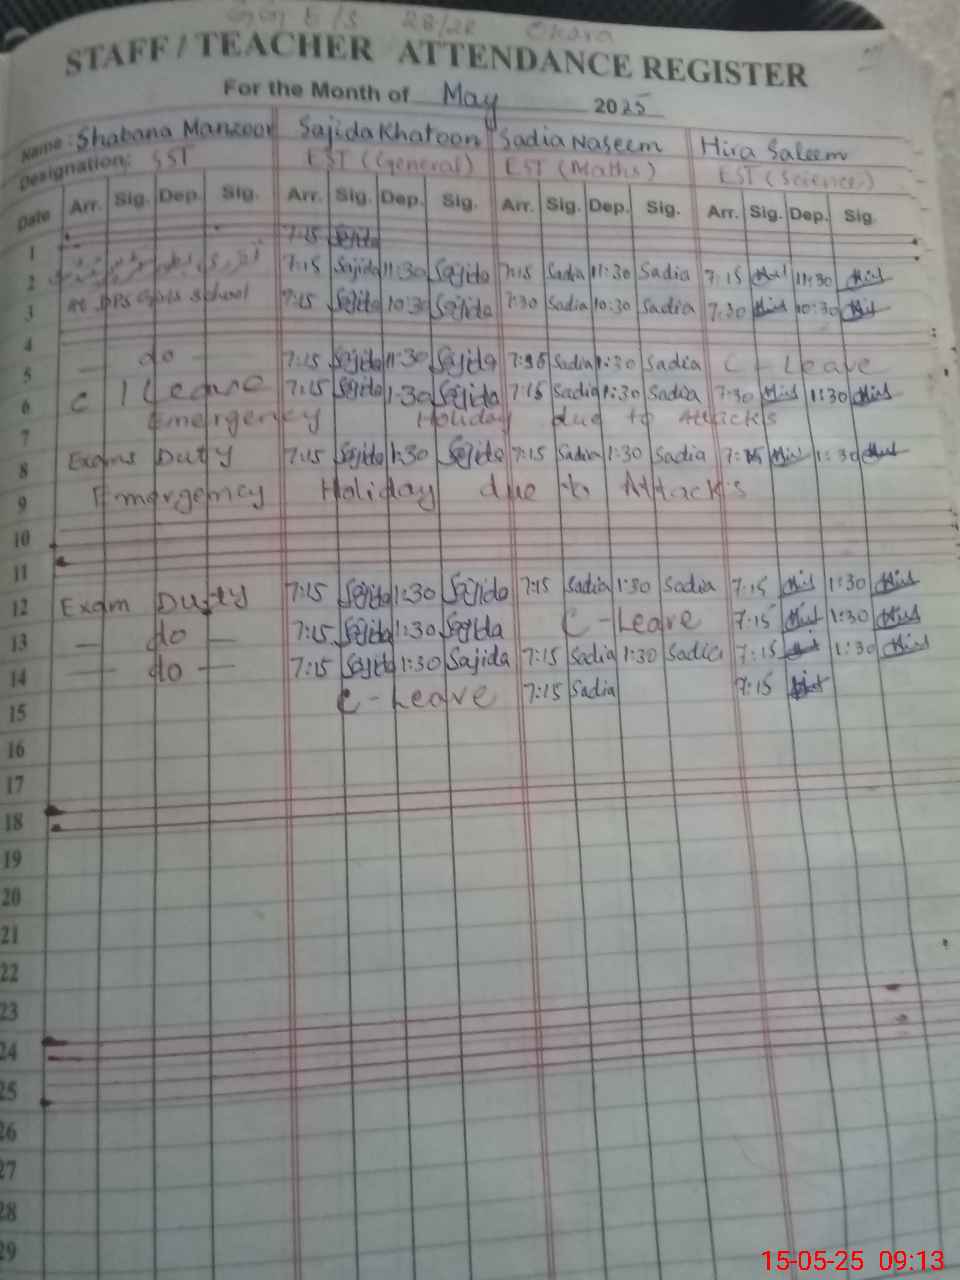 Okara
STAFF / TEACHER ATTENDANCE REGISTER
For the Month of May 2025
Name: Shabana Manzoor Sajida Khatoon Sadia Naseem Hira Saleem
Designation: SST EST (General) EST (Maths) EST (Science)
Date Arr. Sig. Dep. Sig. Arr. Sig. Dep. Sig. Arr. Sig. Dep. Sig. Arr. Sig. Dep. Sig.
1 7:15 Sajida
2 7:15 Sajida 11:30 Sajida 7:15 Sadia 11:30 Sadia 7:15 11:30
3 at DPS Girls School 7:15 Sajida 10:30 Sajida 7:30 Sadia 10:30 Sadia 7:30 10:30
4
5 — do — 7:15 Sajida 1:30 Sajida Sadia 1:30 Sadia C - Leave
6 C / Leave 7:15 Sajida 1:30 Sajida 7:15 Sadia 1:30 Sadia 7:30 1:30
7 Emergency Holiday due to Attacks
8 Exams Duty 7:15 Sajida 1:30 Sajida 7:15 Sadia 1:30 Sadia 7:15 1:30
9 Emergency Holiday due to Attacks
10
11
12 Exam Duty 7:15 Sajida 1:30 Sajida 7:15 Sadia 1:30 Sadia 7:15 1:30
13 — do — 7:15 Sajida 1:30 Sajida C - Leave 7:15 1:30
14 — do — 7:15 Sajida 1:30 Sajida 7:15 Sadia 1:30 Sadia 7:15 1:30
15 C - Leave 7:15 Sadia 7:15
16
17
18
19
20
21
22
23
24
25
26
27
28
29
15-05-25 09:13